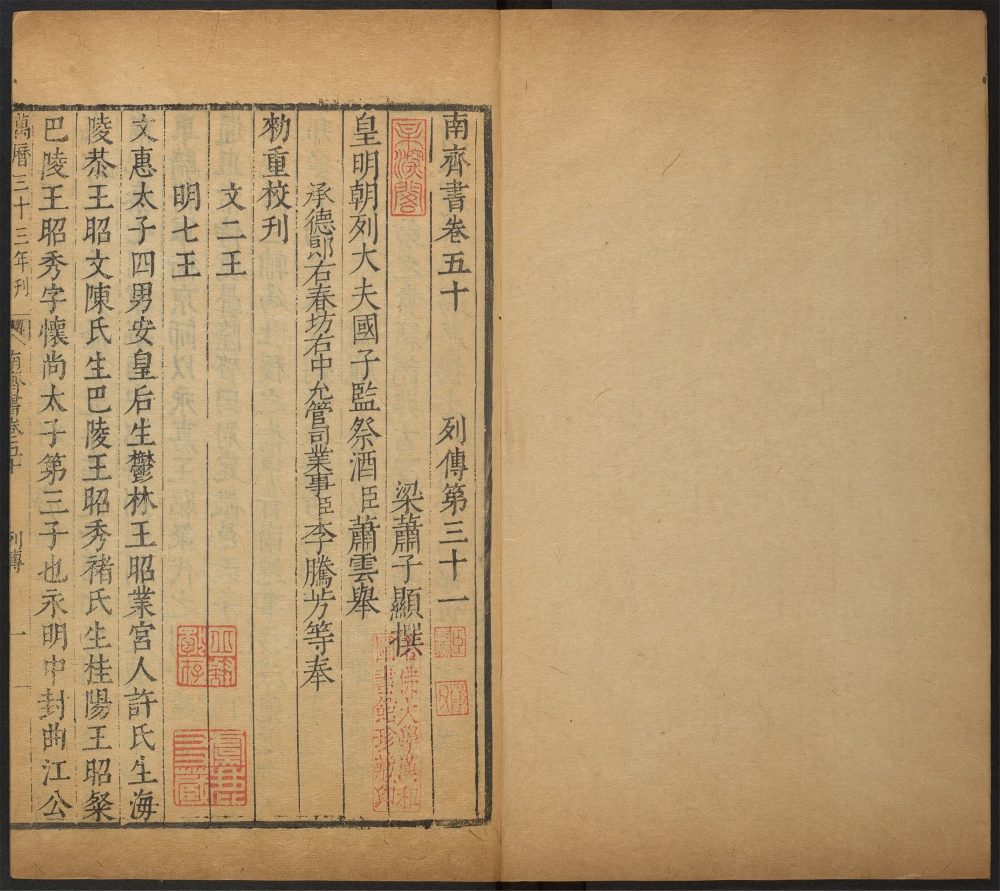 南齊書卷五十 列傳第三十一
梁蕭子顯撰
皇明朝列大夫國子監祭酒臣蕭雲舉
承德郎右春坊右中允管司業事臣李騰芳等奉
勑重校刊
文二王
明七王
文惠太子四男安皇后生鬱林王昭業宮人許氏生海
陵恭王昭文陳氏生巴陵王昭秀褚氏生桂陽王昭粲
巴陵王昭秀字懷尚太子第三子也永明中封曲江公
萬曆三十三年刊 南齊書卷五十 列傳 一
哈佛大學漢和
圖書館珍藏印